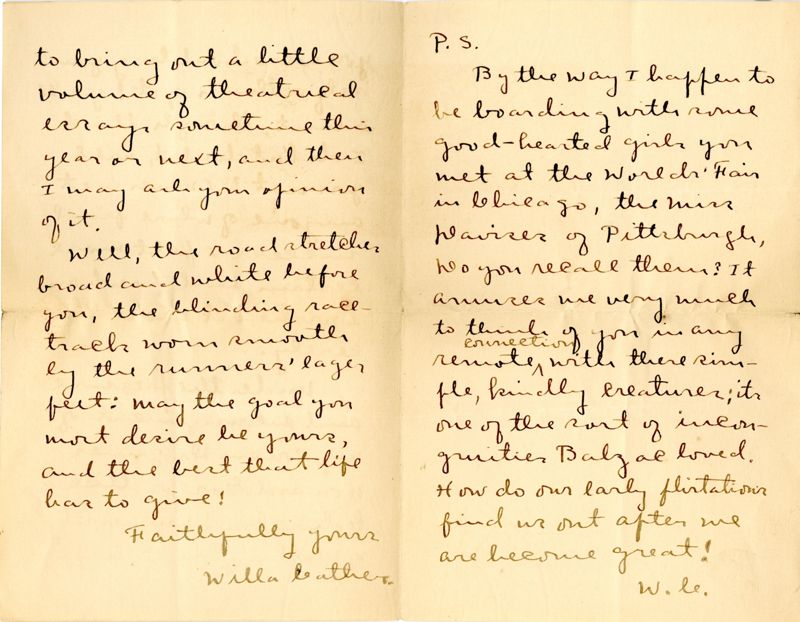 to bring out a little
volume of theatrical
essays sometime this
year or next, and then
I may ask your opinion
of it.
Well, the road stretches
broad and white before
you, the blinding race-
track worn smooth
by the runners' eager
feet: may the goal you
most desire be yours,
and the best that life
has to give!
Faithfully yours
Willa Cather.
P.S.
By the way I happen to
be boarding with some
good-hearted girls you
met at the Worlds' Fair
in Chicago, the Miss
Davises of Pittsburgh,
Do you recall them? It
amuses me very much
to think of you in any
connection
remote, with these sim-
ple, kindly creatures; its
one of the sort of incon-
gruities Balzac loved.
How do our early flirtations
find us out after we
are become great!
W. C.